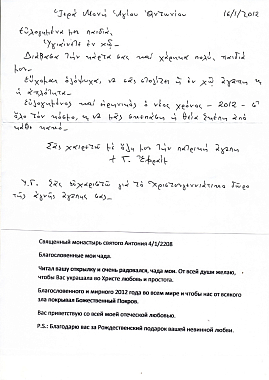 Ἱερά Μονή Ἁγίου Ἀντωνίου 16/1/2012
Εὐλογημένα μου παιδιά,
Ὑγιαίνετε ἐν Χῷ.
Διάβασα τήν κάρτα σας καί χάρηκα πολύ, παιδιά
μου.
Εὔχομαι ὁλόψυχα, νά σᾶς στολίζει ἡ ἐν Χῷ ἀγάπη καί
ἡ ἁπλότητα.
Εὐλογημένος καί εἰρηνικός ὁ νέος χρόνος – 2012 – σ'
ὅλο τόν κόσμο, καί νά μᾶς σκεπάσῃ ἡ θεία Σκέπη ἀπό
κάθε κακό.
Σᾶς χαιρετῶ μέ ὅλη μου τήν πατρική ἀγάπη
+ Γ. Ἐφραίμ
Υ.Γ. Σᾶς εὐχαριστῶ γιά τό Χριστουγεννιάτικο δῶρο
τῆς ἁγνῆς ἀγάπης σας.
Священный монастырь святого Антония 4/1/2208
Благословенные мои чада.
Читал вашу открылку и очень радовался, чада мои. От всей души желаю,
чтобы Вас украшала во Христе любовь и простота.
Благословенного и мирного 2012 года во всем мире и чтобы нас от всякого
зла покрывал Божественный Покров.
Вас приветствую со всей моей отеческой любовью.
P.S.: Благодарю вас за Рождественский подарок вашей невинной любви.